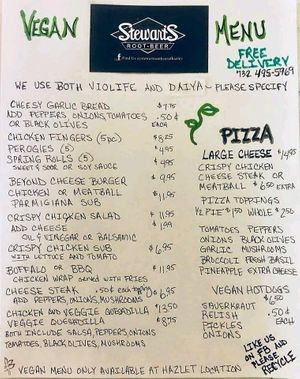 VEGAN
Stewart's
ROOT-BEER
MENU
FREE
DELIVERY
732 495-5969
WE USE BOTH VIOLIFE AND DAIYA ~ PLEASE SPECIFY
CHEESY GARLIC BREAD $7.75
ADD PEPPERS, ONIONS, TOMATOES .50¢
OR BLACK OLIVES EACH
CHICKEN FINGERS (5pc) $8.25
PEROGIES (5) $4.95
SPRING ROLLS (5) $4.95
SWEET & SOUR OR SOY SAUCE
BEYOND CHEESE BURGER $9.95
CHICKEN OR MEATBALL $11.95
PARMIGIANA SUB
CRISPY CHICKEN SALAD $11.95
ADD CHEESE $1.99
OIL & VINEGAR OR BALSAMIC
CRISPY CHICKEN SUB $6.95
WITH LETTUCE AND TOMATO
BUFFALO OR BBQ $11.95
CHICKEN WRAP SERVED WITH FRIES
CHEESE STEAK $6.95
ADD PEPPERS, ONIONS, MUSHROOMS .50¢ each
CHICKEN AND VEGGIE QUESADILLA $13.50
VEGGIE QUESADILLA $8.75
BOTH INCLUDE SALSA, PEPPERS, ONIONS
TOMATOES, BLACK OLIVES, MUSHROOMS
PIZZA
LARGE CHEESE $14.95
CRISPY CHICKEN
CHEESE STEAK OR
MEATBALL $6.50 EXTRA
PIZZA TOPPINGS
½ PIE $1.50 WHOLE $2.50
TOMATOES PEPPERS
ONIONS BLACK OLIVES
GARLIC MUSHROOMS
BROCCOLI FRESH BASIL
PINEAPPLE EXTRA CHEESE
VEGAN HOTDOGS
$6.50
SAUERKRAUT
RELISH .50¢
PICKLES EACH
ONIONS
LIKE US
ON FB AND
PLEASE
RECYCLE
VEGAN MENU ONLY AVAILABLE AT HAZLET LOCATION